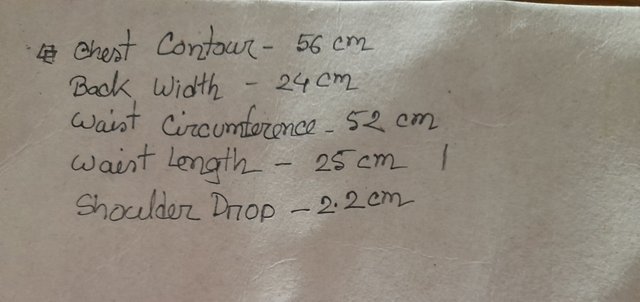 Chest Contour - 56 cm
Back Width - 24 cm
Waist Circumference - 52 cm
Waist Length - 25 cm
Shoulder Drop - 2.2 cm